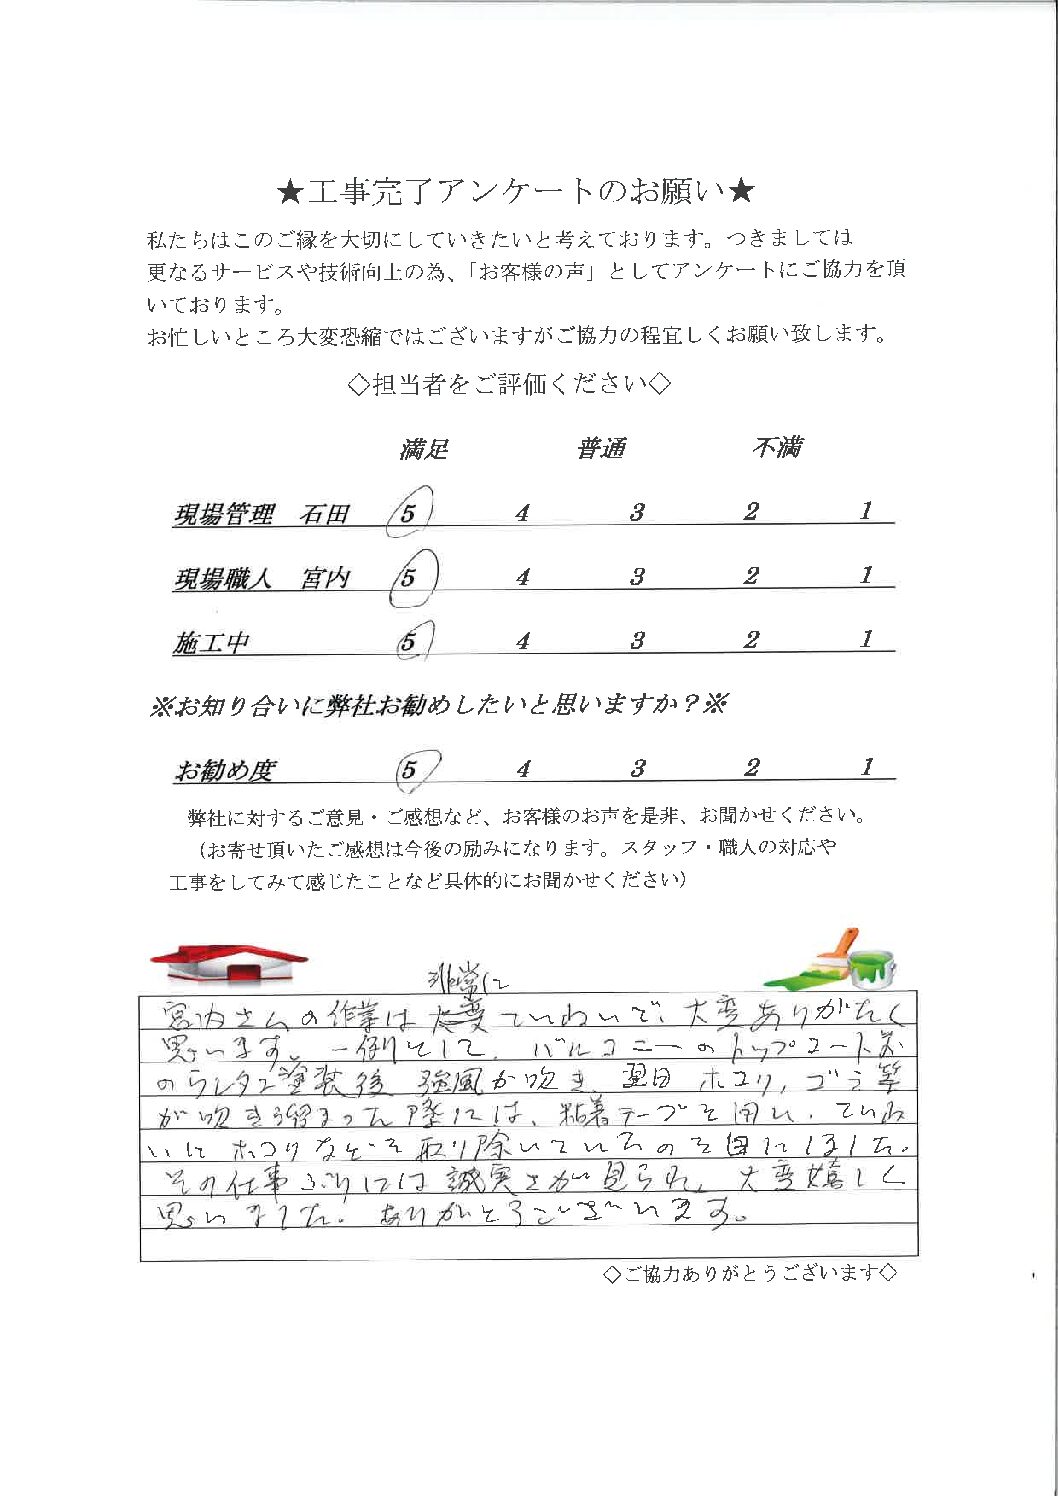 ★工事完了アンケートのお願い★
私たちはこのご縁を大切にしていきたいと考えております。つきましては
更なるサービスや技術向上の為、「お客様の声」としてアンケートにご協力を頂
いております。
お忙しいところ大変恐縮ではございますがご協力の程宜しくお願い致します。
◇担当者をご評価ください◇
満足 普通 不満
現場管理 石田 5 4 3 2 1
現場職人 宮内 5 4 3 2 1
施工中 5 4 3 2 1
※お知り合いに弊社お勧めしたいと思いますか？※
お勧め度 5 4 3 2 1
弊社に対するご意見・ご感想など、お客様のお声を是非、お聞かせください。
（お寄せ頂いたご感想は今後の励みになります。スタッフ・職人の対応や
工事をしてみて感じたことなど具体的にお聞かせください）
非常に
宮内さんの作業は ていねいで、大変ありがたく
思います。一例として、バルコニーのトップコート前
のウレタン塗装後 強風が吹き、翌日 ホコリ、ゴミ等
が吹き溜まった際には、粘着テープを用い、ていね
いにホコリなどを取り除いているのを目にしました。
その仕事ぶりには誠実さが見られ、大変嬉しく
思いました。ありがとうございます。
◇ご協力ありがとうございます◇